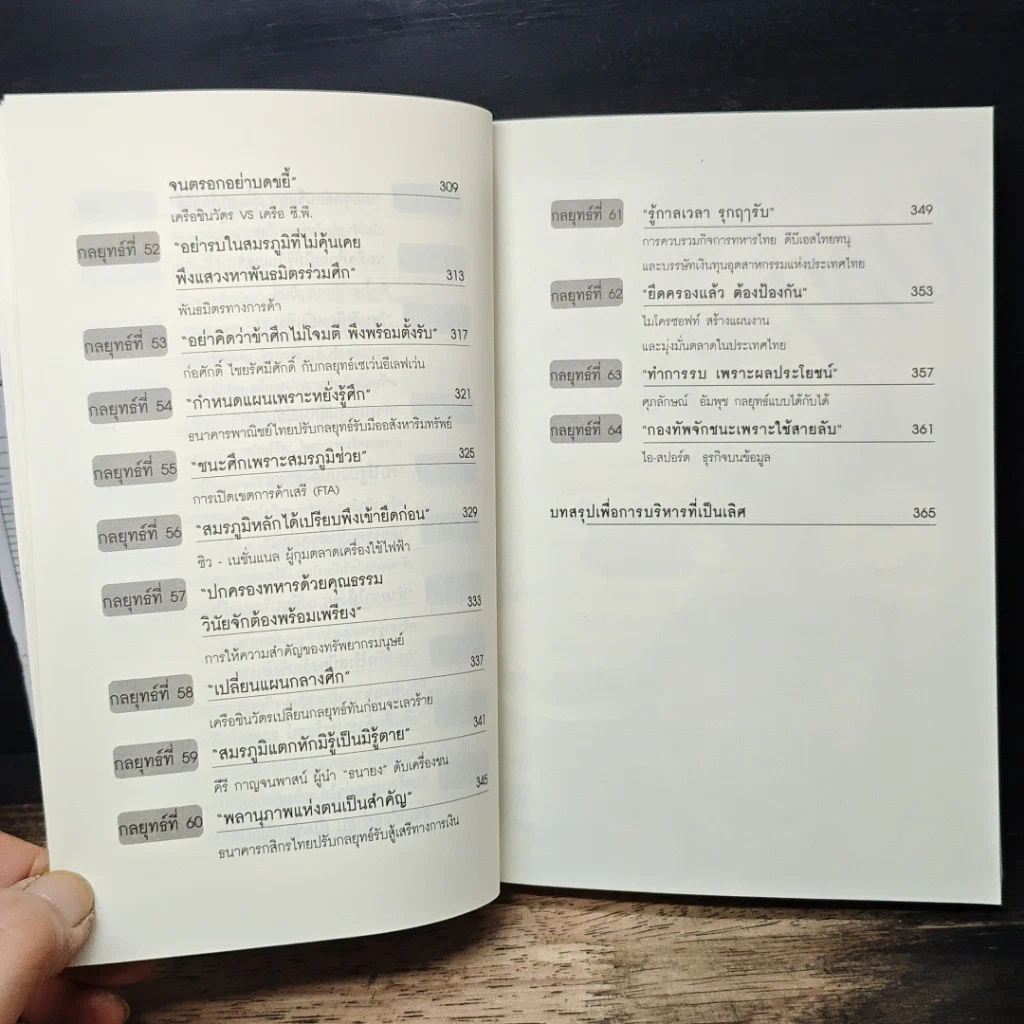 จนตรอกอย่าบดขยี้” 309
เครือชินวัตร VS เครือ ซี.พี.
กลยุทธ์ที่ 52 “อย่ารบในสมรภูมิที่ไม่คุ้นเคย
พึงแสวงหาพันธมิตรร่วมศึก” 313
พันธมิตรทางการค้า
กลยุทธ์ที่ 53 “อย่าคิดว่าข้าศึกไม่โจมตี พึงพร้อมตั้งรับ” 317
ก่อศักดิ์ ไชยรัศมีศักดิ์ กับกลยุทธ์เซเว่นอีเลฟเว่น
กลยุทธ์ที่ 54 “กำหนดแผนเพราะหยั่งรู้ศึก” 321
ธนาคารพาณิชย์ไทยปรับกลยุทธ์รับมืออสังหาริมทรัพย์
กลยุทธ์ที่ 55 “ชนะศึกเพราะสมรภูมิช่วย” 325
การเปิดเขตการค้าเสรี (FTA)
กลยุทธ์ที่ 56 “สมรภูมิหลักได้เปรียบพึงเข้ายึดก่อน” 329
ซิว - เนชั่นแนล ผู้กุมตลาดเครื่องใช้ไฟฟ้า
กลยุทธ์ที่ 57 “ปกครองทหารด้วยคุณธรรม
วินัยจักต้องพร้อมเพรียง” 333
การให้ความสำคัญของทรัพยากรมนุษย์
กลยุทธ์ที่ 58 “เปลี่ยนแผนกลางศึก” 337
เครือชินวัตรเปลี่ยนกลยุทธ์ทันก่อนจะเลวร้าย
กลยุทธ์ที่ 59 “สมรภูมิแตกหักมิรู้เป็นมิรู้ตาย” 341
คีรี กาญจนพาสน์ ผู้นำ “ธนายง” ดับเครื่องชน
กลยุทธ์ที่ 60 “พลานุภาพแห่งตนเป็นสำคัญ” 345
ธนาคารกสิกรไทยปรับกลยุทธ์รับสู้เสรีทางการเงิน
กลยุทธ์ที่ 61 “รู้กาลเวลา รุกฤๅรับ” 349
การควบรวมกิจการทหารไทย ดีบีเอสไทยทนุ
และบรรษัทเงินทุนอุตสาหกรรมแห่งประเทศไทย
กลยุทธ์ที่ 62 “ยึดครองแล้ว ต้องป้องกัน” 353
ไมโครซอฟท์ สร้างแผนงาน
และมุ่งมั่นตลาดในประเทศไทย
กลยุทธ์ที่ 63 “ทำการรบ เพราะผลประโยชน์” 357
ศุภลักษณ์ อัมพุช กลยุทธ์แบบได้กับได้
กลยุทธ์ที่ 64 “กองทัพจักชนะเพราะใช้สายลับ” 361
ไอ-สปอร์ต ธุรกิจบนข้อมูล
บทสรุปเพื่อการบริหารที่เป็นเลิศ 365